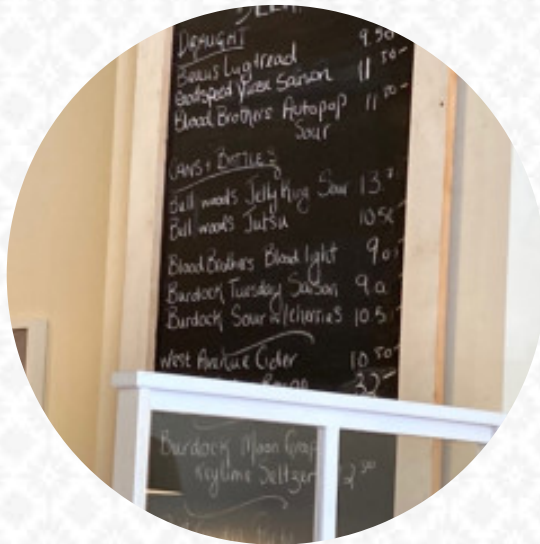 BEER
DRAUGHT
Beaus Lugtread 9.50
Godspeed Yuzu Saison 11.50-
Blood Brothers Autopop 11.00-
Sour
CANS + BOTTLES
Bellwoods Jelly King Sour 13.
Bellwoods Jutsu 10.50
Blood Brothers Blood light 9.0
Burdock Tuesday Saison 9.0
Burdock Sour w/cherries 10.5
West Avenue Cider 10.50-
32-
Burdock Moon
Keylime Seltzer